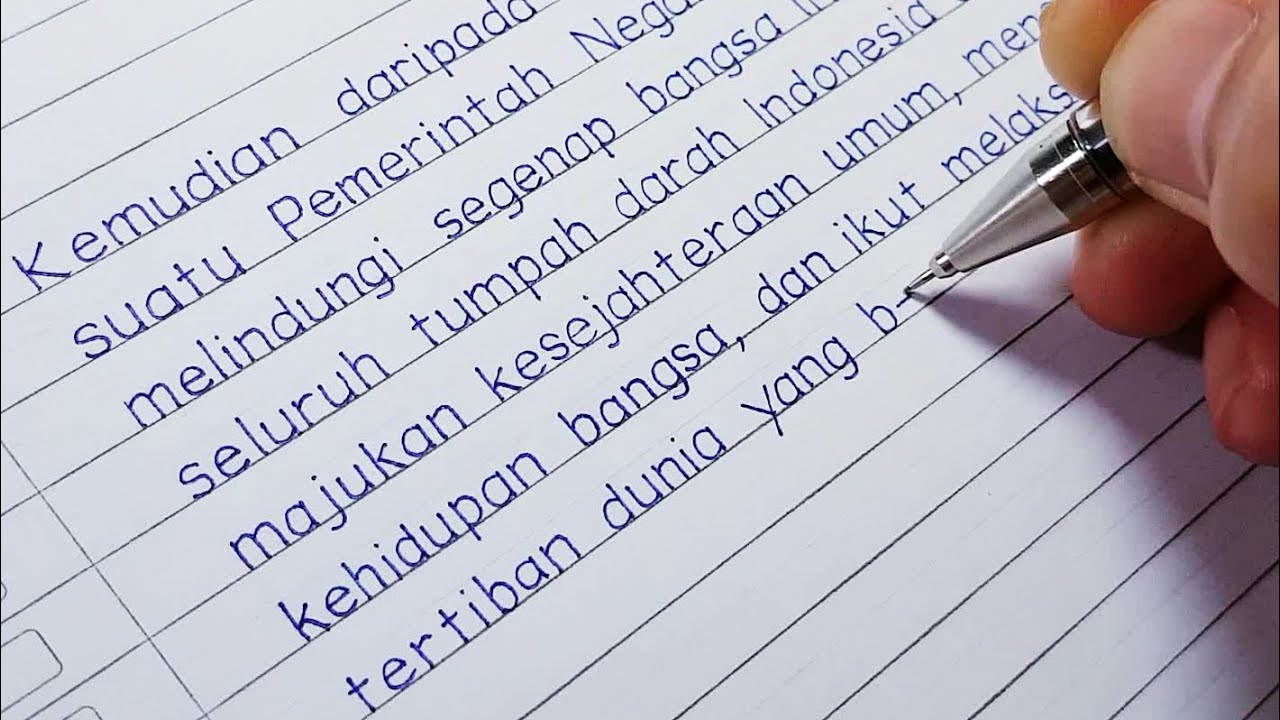 Kemudian daripada
suatu Pemerintah Nega
melindungi segenap bangsa in
seluruh tumpah darah Indonesia
majukan kesejahteraan umum, men
kehidupan bangsa, dan ikut melaks
tertiban dunia yang b